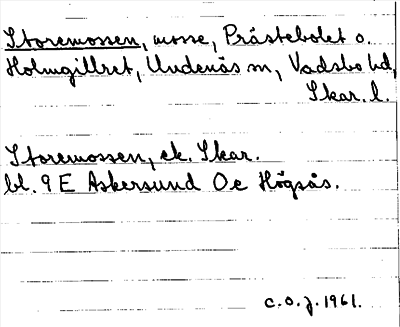 Storemossen, mosse, Prästebolet o.
Holmgillret, Undenäs sn, Vadsbo hd,
Skar. l.
Storemossen, ek. Skar.
bl. 9 E Askersund Oc Högsås.
C.O.J. 1961.